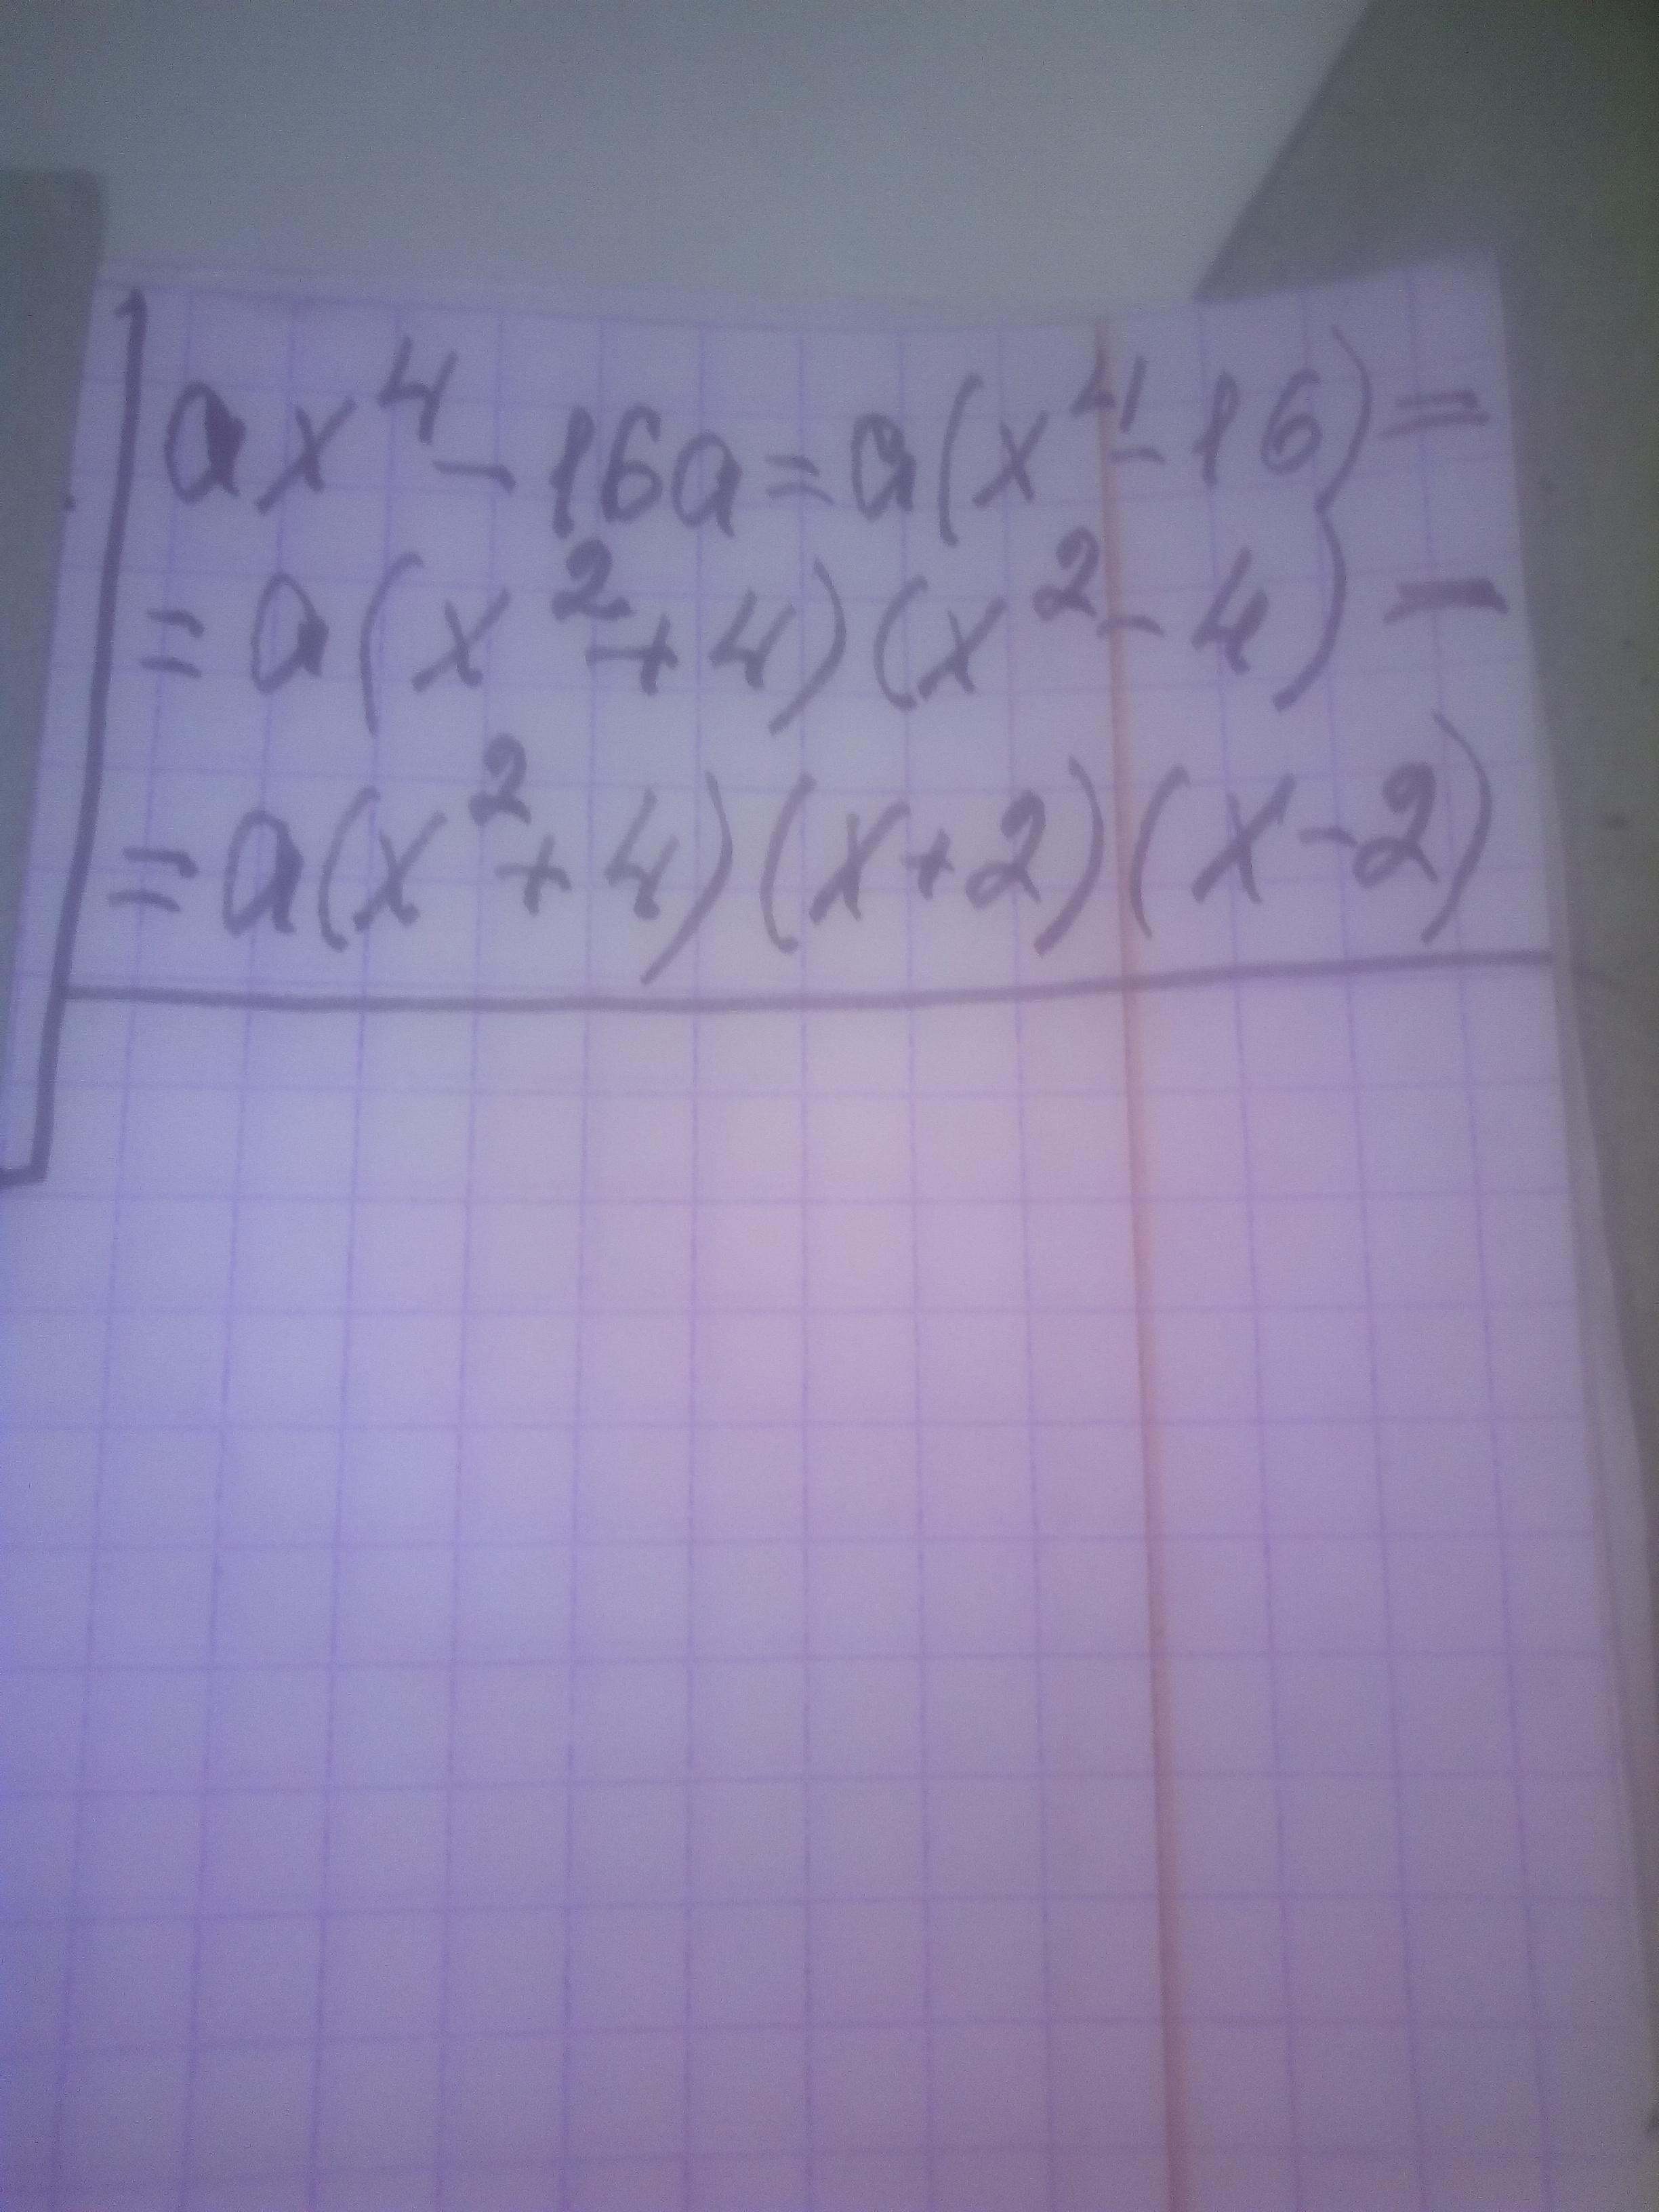 ax⁴-16a=a(x⁴-16)=
=a(x²+4)(x²-4)-
=a(x²+4)(x+2)(x-2)